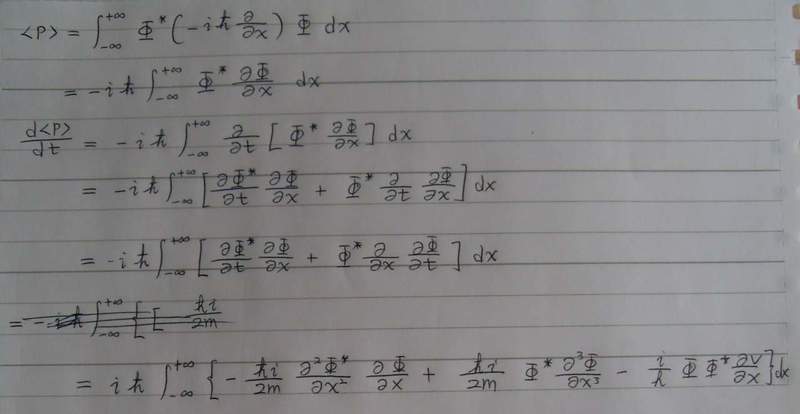 <P> = ∫_{-∞}^{+∞} Φ* (-iħ ∂/∂x) Φ dx
= -iħ ∫_{-∞}^{+∞} Φ* ∂Φ/∂x dx
d<P>/dt = -iħ ∫_{-∞}^{+∞} ∂/∂t [Φ* ∂Φ/∂x] dx
= -iħ ∫_{-∞}^{+∞} [∂Φ*/∂t ∂Φ/∂x + Φ* ∂/∂t ∂Φ/∂x] dx
= -iħ ∫_{-∞}^{+∞} [∂Φ*/∂t ∂Φ/∂x + Φ* ∂/∂x ∂Φ/∂t] dx
= -iħ ∫_{-∞}^{+∞} {[ ħi/2m
= iħ ∫_{-∞}^{+∞} {-ħi/2m ∂²Φ*/∂x² ∂Φ/∂x + ħi/2m Φ* ∂³Φ/∂x³ - i/ħ ΦΦ* ∂V/∂x] dx